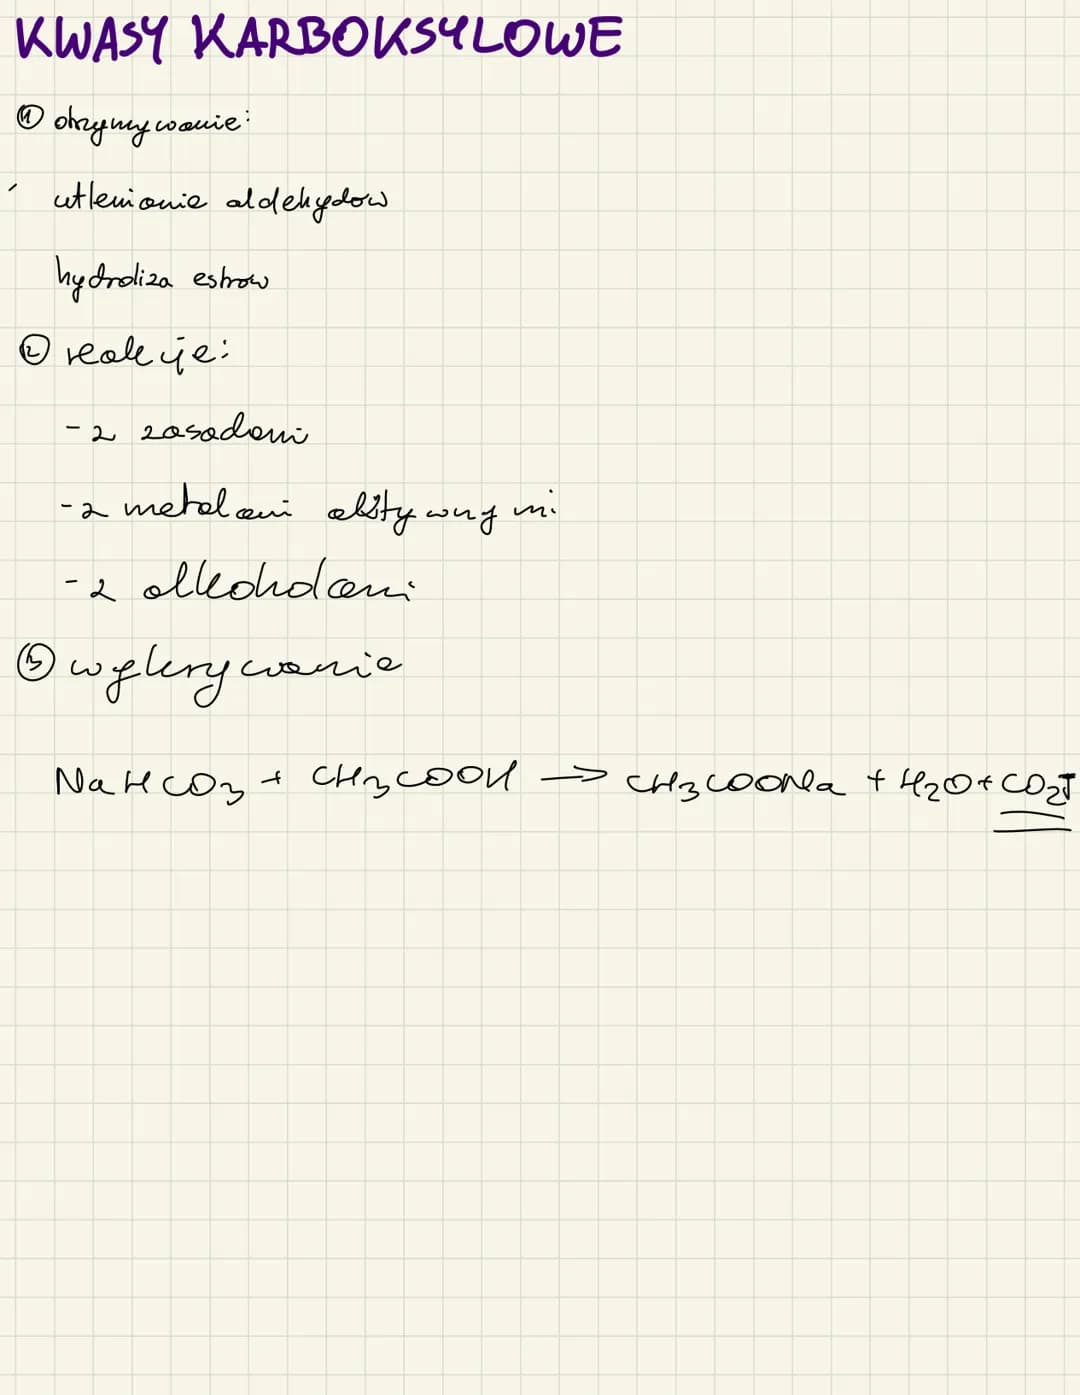 KWASY KARBOKSYLOWE
① otrzymywanie:
utlenianie aldehydow
hydroliza estrow
② reakcje:
- z zasadami
- z metalami aktywnymi
- z alkoholami
③ wykrywanie
NaHCO3 + CH3COOH → CH3COONa + H2O + CO2↑